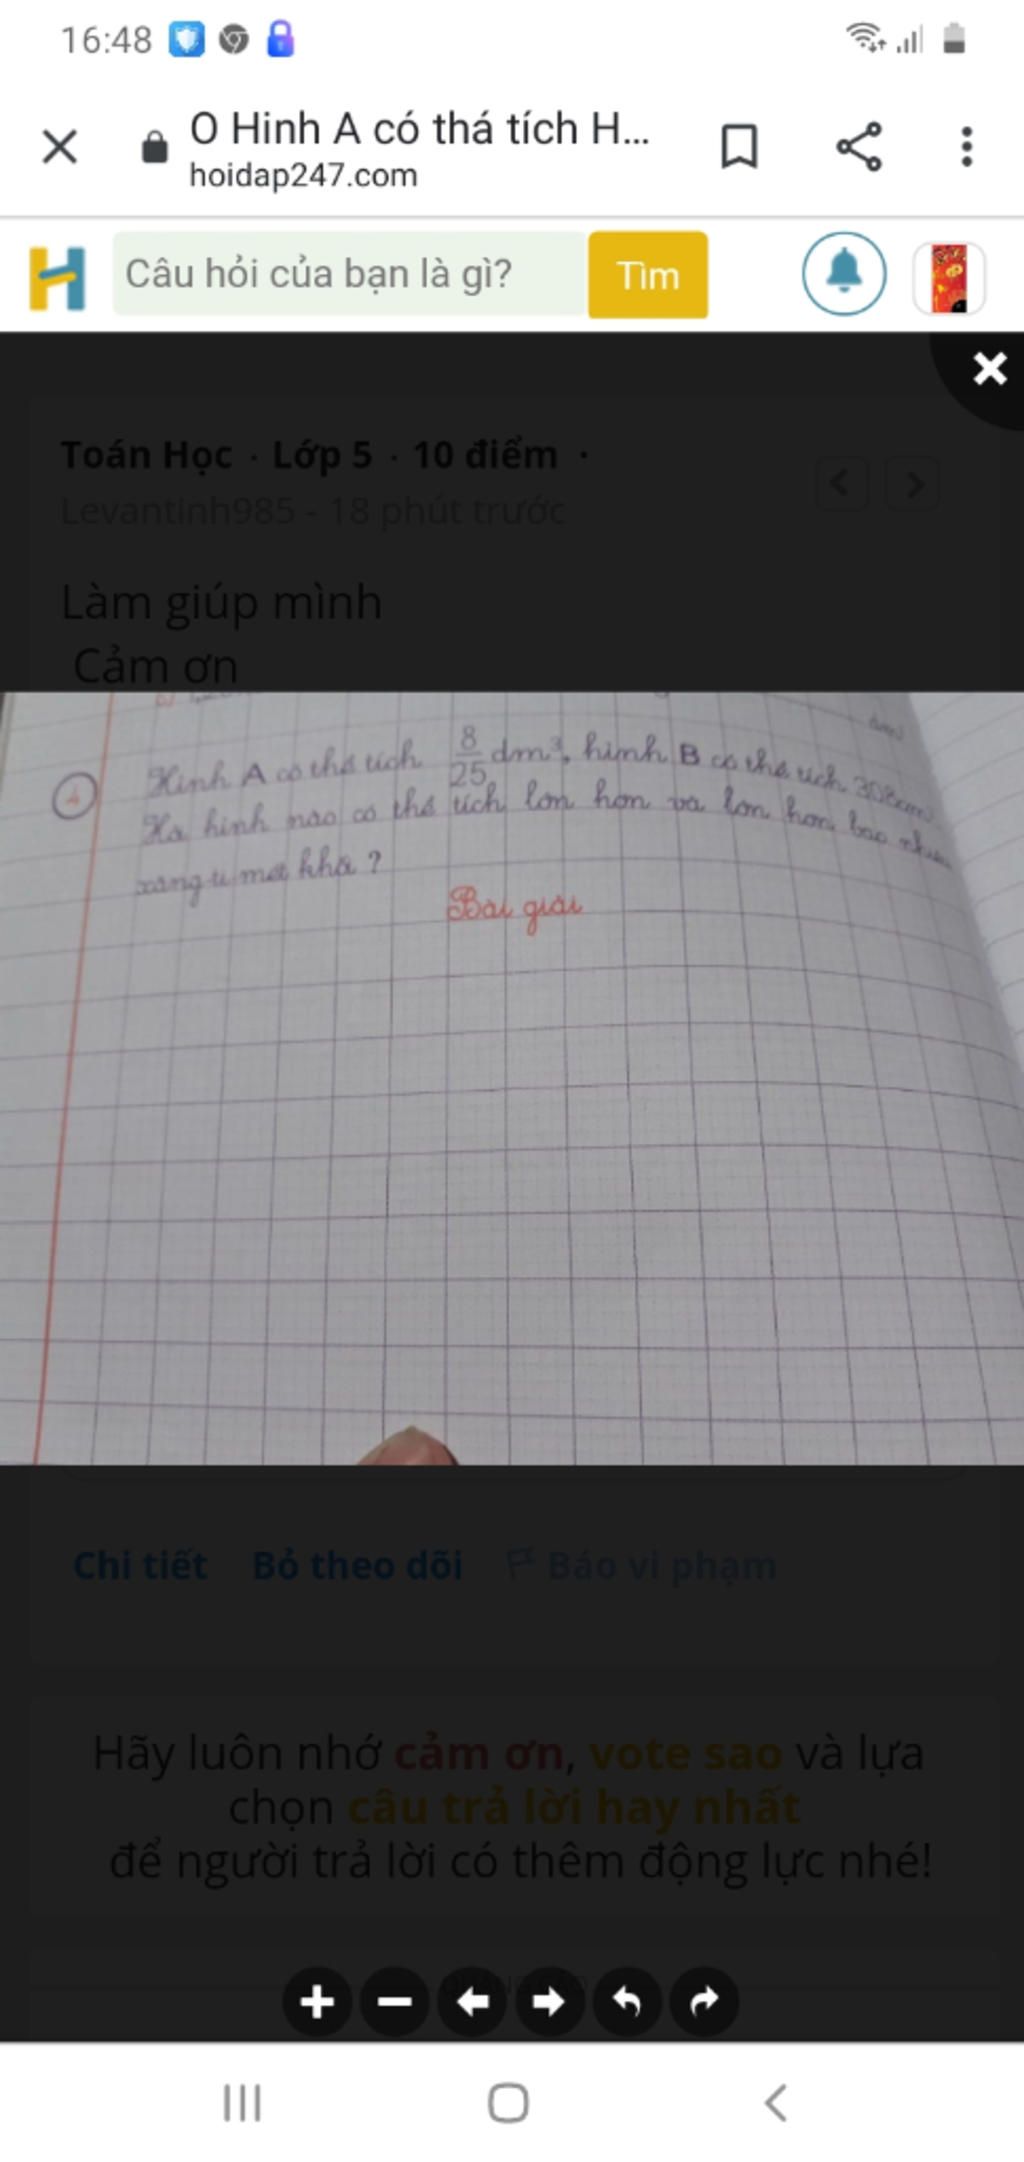 16:48
O Hinh A có thá tích H...
hoidap247.com
Câu hỏi của bạn là gì?
Tìm
Toán Học · Lớp 5 · 10 điểm ·
Levantinh985 - 18 phút trước
Làm giúp mình
Cảm ơn
4
Hình A có thể tích 8/25 dm³, hình B có thể tích 308cm
Hỏi hình nào có thể tích lớn hơn và lớn hơn bao nhiêu
xăng-ti-mét khối?
Bài giải
Chi tiết Bỏ theo dõi Báo vi phạm
Hãy luôn nhớ cảm ơn, vote sao và lựa
chọn câu trả lời hay nhất
để người trả lời có thêm động lực nhé!